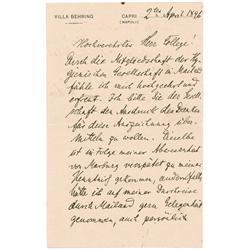 VILLA BEHRING CAPRI
(NAPOLI)
2ten April 1896
Hochverehrter Herr College!
Durch die Mitgliedschaft der Hy-
gienischen Gesellschaft in Mailand
fühle ich mich hochgeehrt und
erfreut. Ich bitte Sie der Gesell-
schaft den Ausdruck des Dankes
für diese Auszeichnung über-
mitteln zu wollen. Dieselbe
ist in Folge meiner Abwesenheit
von Marburg verspätet zu meiner
Kenntniß gekommen, andernfalls
hätte ich auf meiner Durchreise
durch Mailand gern Gelegenheit
genommen, auch persönlich